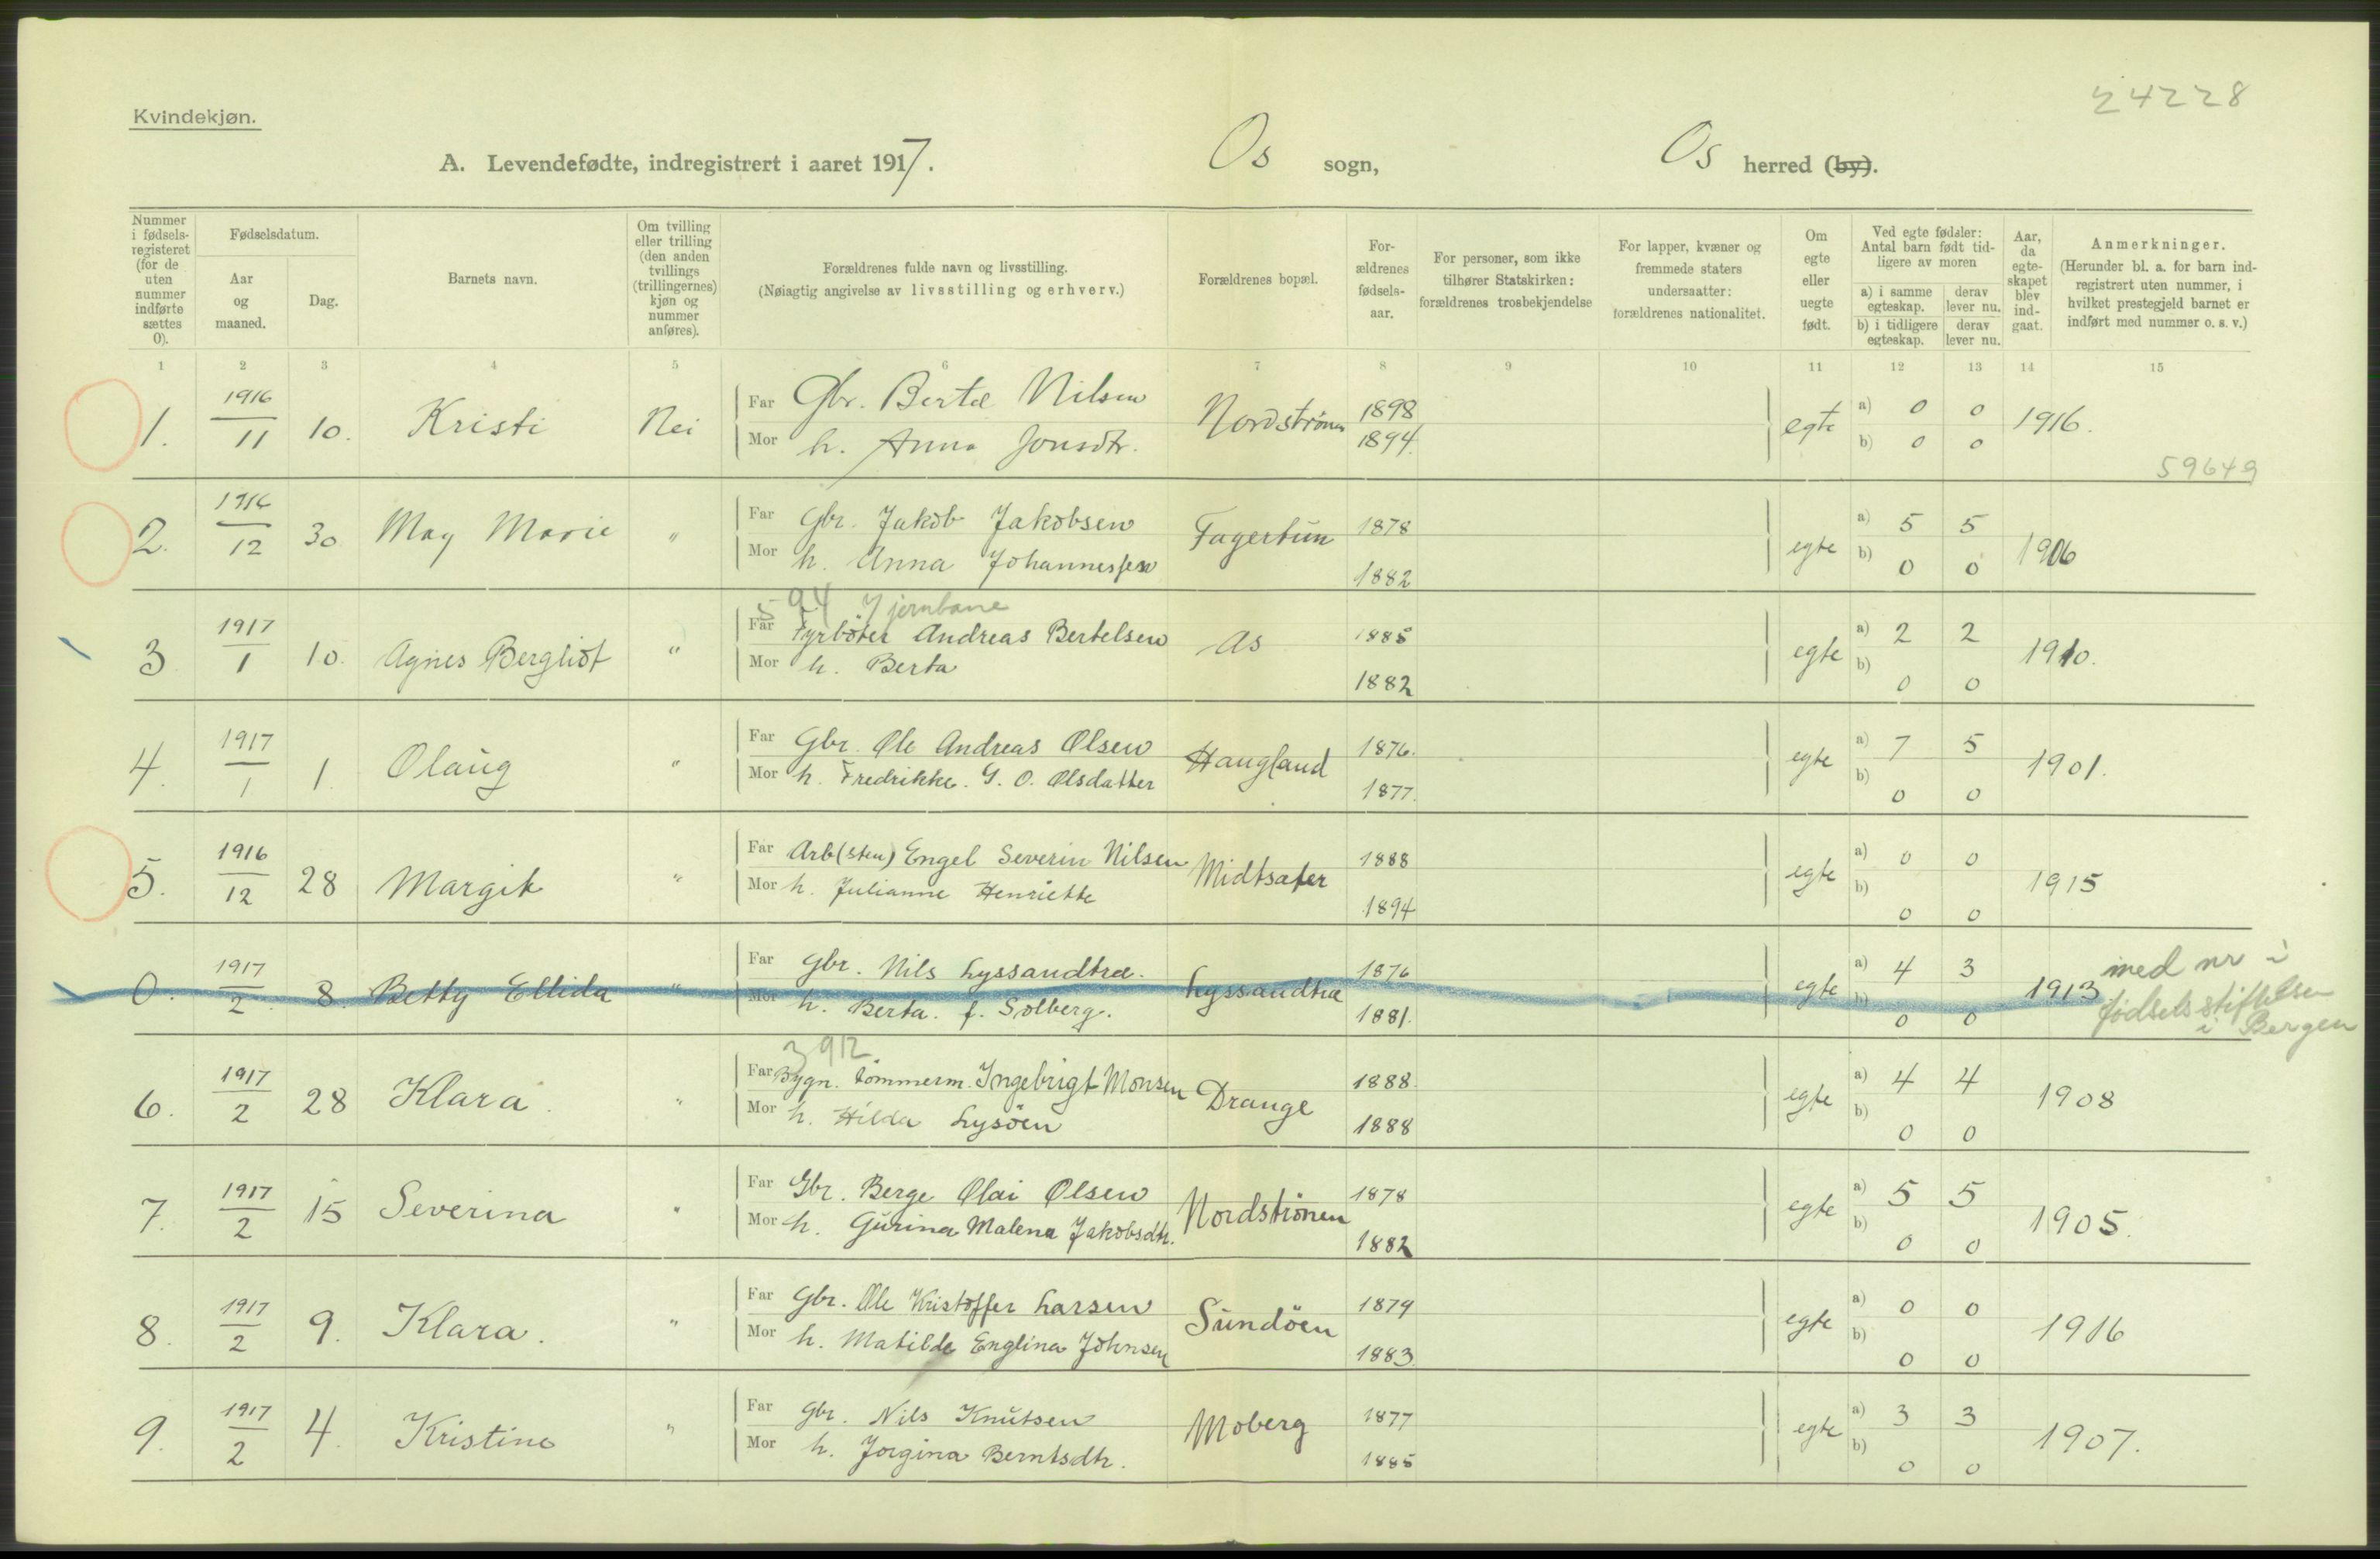 24228
Kvindekjøn.
A. Levendefødte, indregistrert i aaret 1917. Os sogn, Os herred (by).
Nummer i fødselsregisteret (for de uten nummer indførte sættes 0).
Fødselsdatum.
Aar og maaned.
Dag.
Barnets navn.
Om tvilling eller trilling (den anden tvillings (trillingernes) kjøn og nummer anføres).
Forældrenes fulde navn og livsstilling.
(Nøiagtig angivelse av livsstilling og erhverv.)
Forældrenes bopæl.
Forældrenes fødselsaar.
For personer, som ikke tilhører Statskirken: forældrenes trosbekjendelse
For lapper, kvæner og fremmede staters undersaatter: forældrenes nationalitet.
Om egte eller uegte født.
Ved egte fødsler: Antal barn født tidligere av moren
a) i samme egteskap. derav lever nu.
b) i tidligere egteskap. derav lever nu.
Aar, da egteskapet blev indgaat.
Anmerkninger.
(Herunder bl. a. for barn indregistrert uten nummer, i hvilket prestegjeld barnet er indført med nummer o. s. v.)
1 2 3 4 5 6 7 8 9 10 11 12 13 14 15
1. 1916/11 10. Kristi Nei Far Gbr. Bertel Nilsen Nordstrønen 1898 egte a) 0 0 1916.
Mor h. Anna Jonsdtr. 1894. b) 0 0
59649
2. 1916/12 30 May Marie " Far Gbr. Jakob Jakobsen Fagertun 1878 egte a) 5 5 1906
Mor h. Anna Johannessen 1882 b) 0 0
594 Jernbane
3 1917/1 10. Agnes Bergliot " Far Fyrböter Andreas Bertelsen Os 1885 egte a) 2 2 1910.
Mor h. Berta 1882 b) 0 0
4. 1917/1 1. Olaug " Far Gbr. Ole Andreas Olsen Haugland 1876. egte a) 7 5 1901.
Mor h. Fredrikke. G. O. Olsdatter 1877. b) 0 0
5. 1916/12 28 Margit " Far Arb (sten) Engel Severin Nilsen Midtsæter 1888 egte a) 0 0 1915
Mor h. Julianne Henriette 1894 b) 0 0
0. 1917/2. 8. Betty Ellida " Far Gbr. Nils Lyssandtræ. Lyssandtræ 1876 egte a) 4 3 1913 med nr i fødselsstiftelsen i Bergen
Mor h. Berta. f. Solberg. 1881. b) 0 0
3912
6. 1917/2 28 Klara. " Far Bygn. tömmerm. Ingebrigt Monsen Drange 1888. egte a) 4 4 1908
Mor h. Hilda Lysöen 1888 b) 0 0
7. 1917/2 15 Severina " Far Gbr. Berge Olai Olsen Nordströnen 1878 egte a) 5 5 1905.
Mor h. Gurina Malena Jakobsdtr. 1882 b) 0 0
8. 1917/2 9. Klara. " Far Gbr. Ole Kristoffer Larsen Sundöen 1879 egte a) 0 0 1916
Mor h. Matilde Englina Johnsen 1883. b) 0 0
9. 1917/2 4. Kristine " Far Gbr. Nils Knutsen Moberg 1877 egte a) 3 3 1907.
Mor h. Jorgina Berntsdtr. 1885 b) 0 0